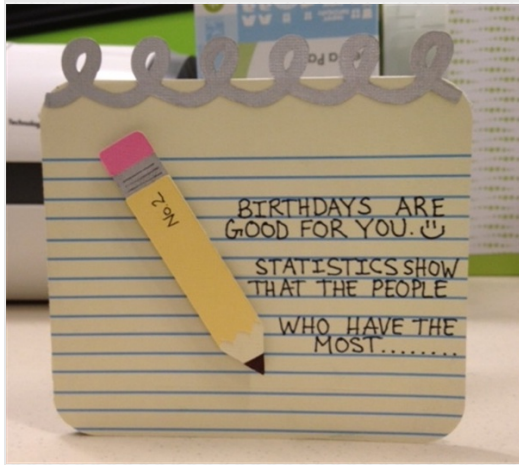 No.2
BIRTHDAYS ARE
GOOD FOR YOU.
STATISTICS SHOW
THAT THE PEOPLE
WHO HAVE THE
MOST........